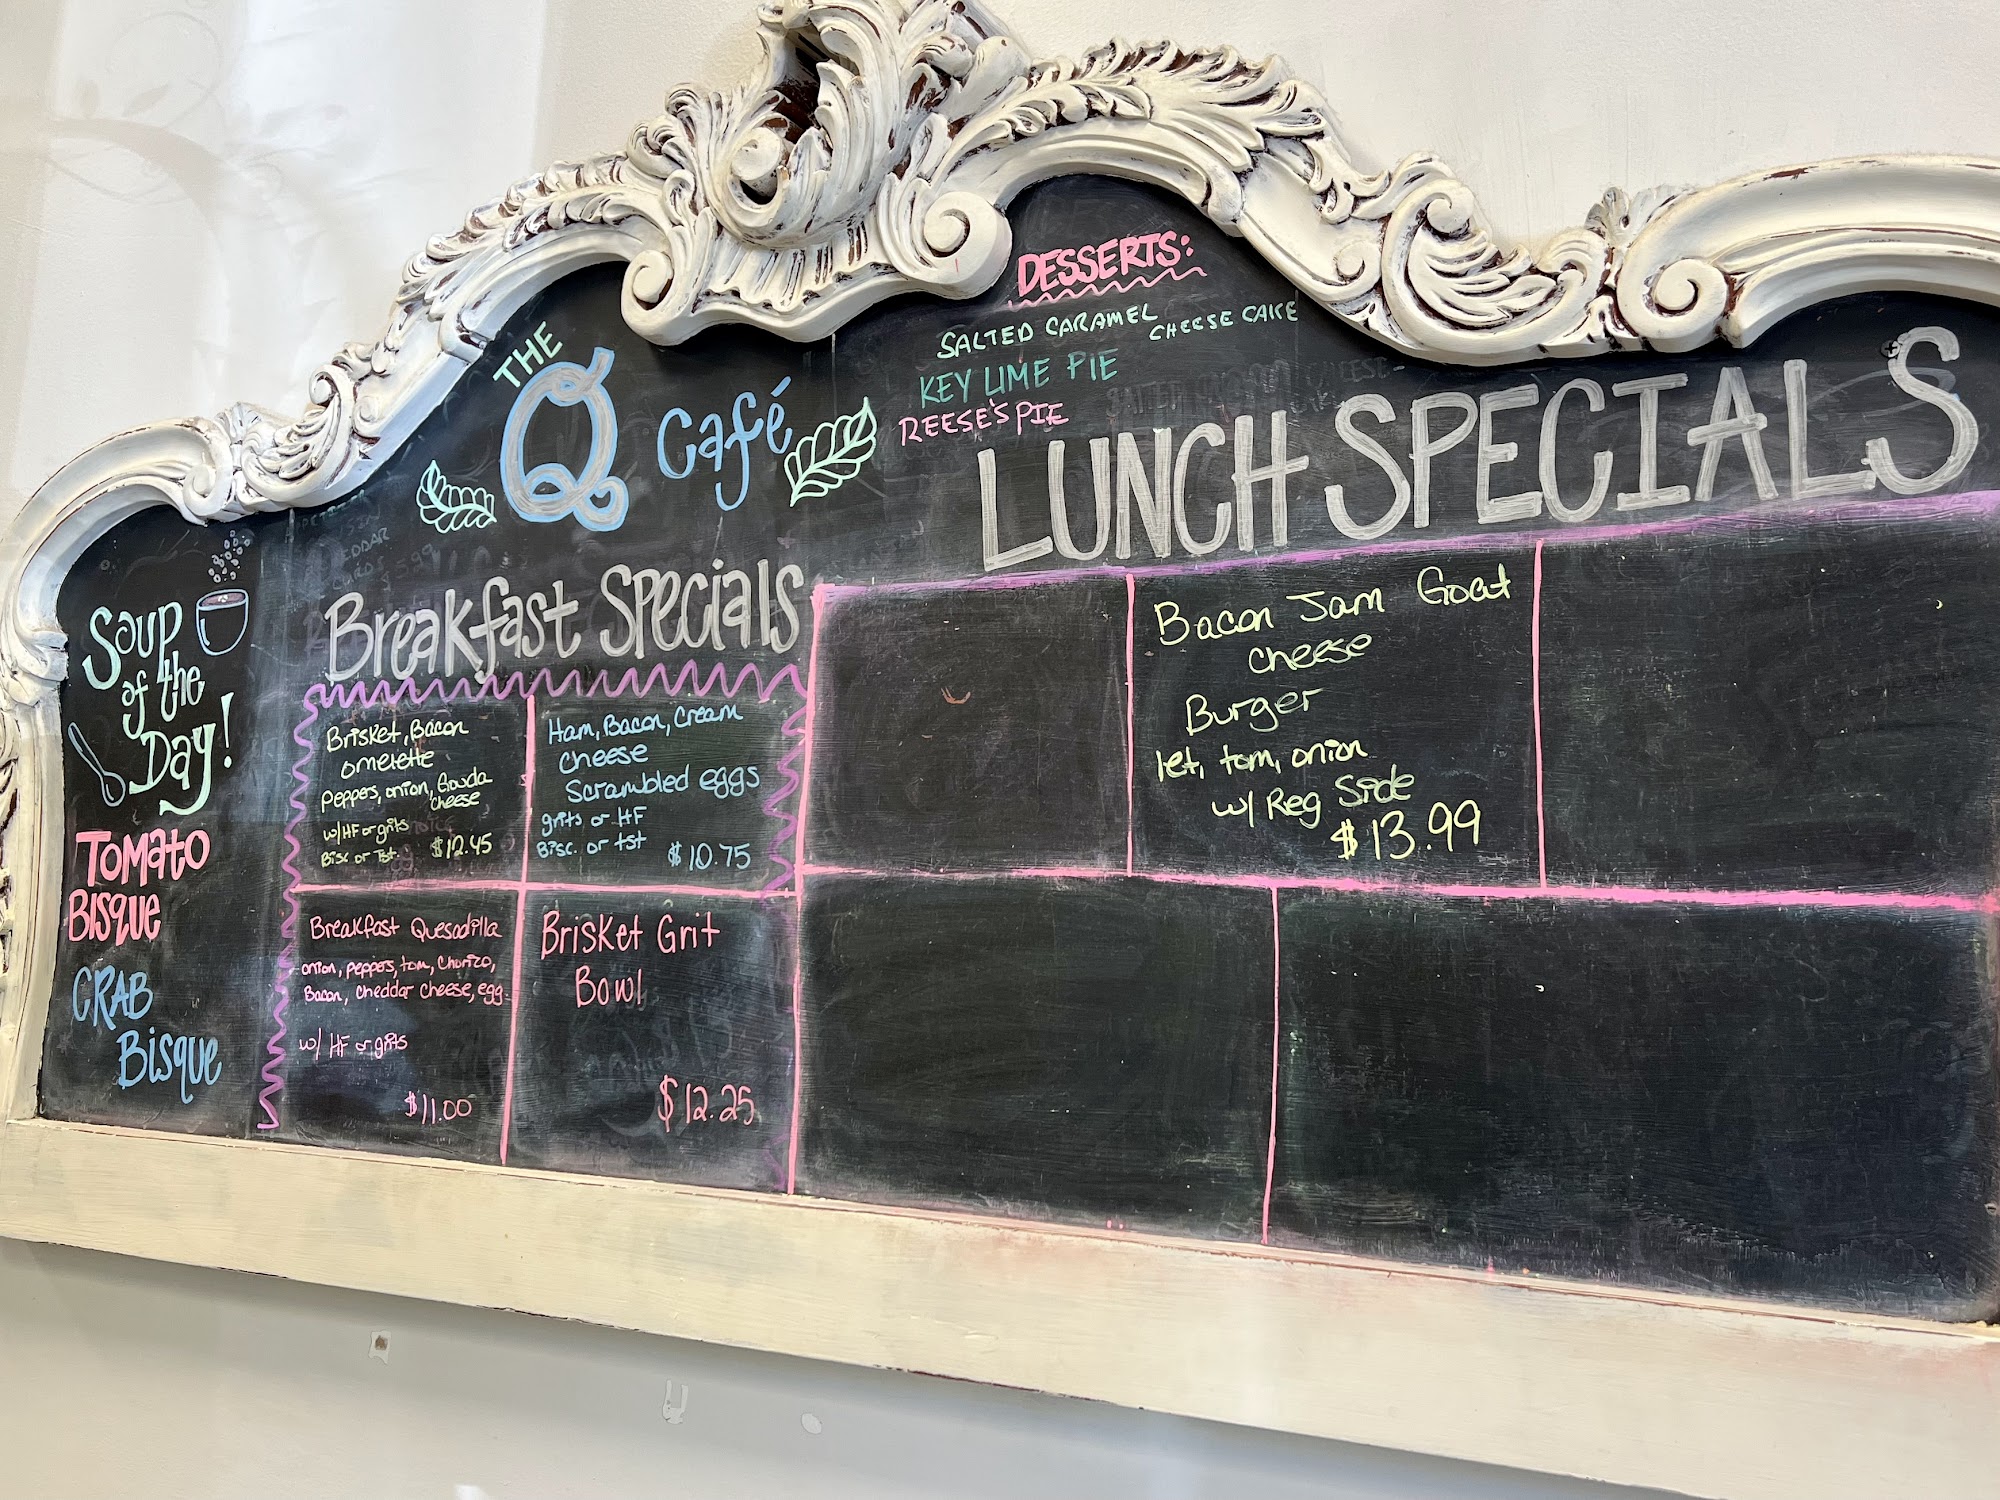 THE
Q Café
DESSERTS:
SALTED CARAMEL
CHEESE CAKE
KEY LIME PIE
REESE'S PIE
Soup
of the
Day!
Tomato
Bisque
CRAB
Bisque
Breakfast Specials
Brisket, Bacon
omelette
peppers, onion, Gouda
cheese
w/ HF or grits
Bisc or Tst. $12.45
Ham, Bacon, Cream
cheese
Scrambled eggs
grits or HF
Bisc. or tst $10.75
Breakfast Quesadilla
onion, peppers, tom, Chorizo,
Bacon, cheddar cheese, egg
w/ HF or grits
$11.00
Brisket Grit
Bowl
$12.25
LUNCH SPECIALS
Bacon Jam Goat
cheese
Burger
let, tom, onion
w/ Reg Side
$13.99